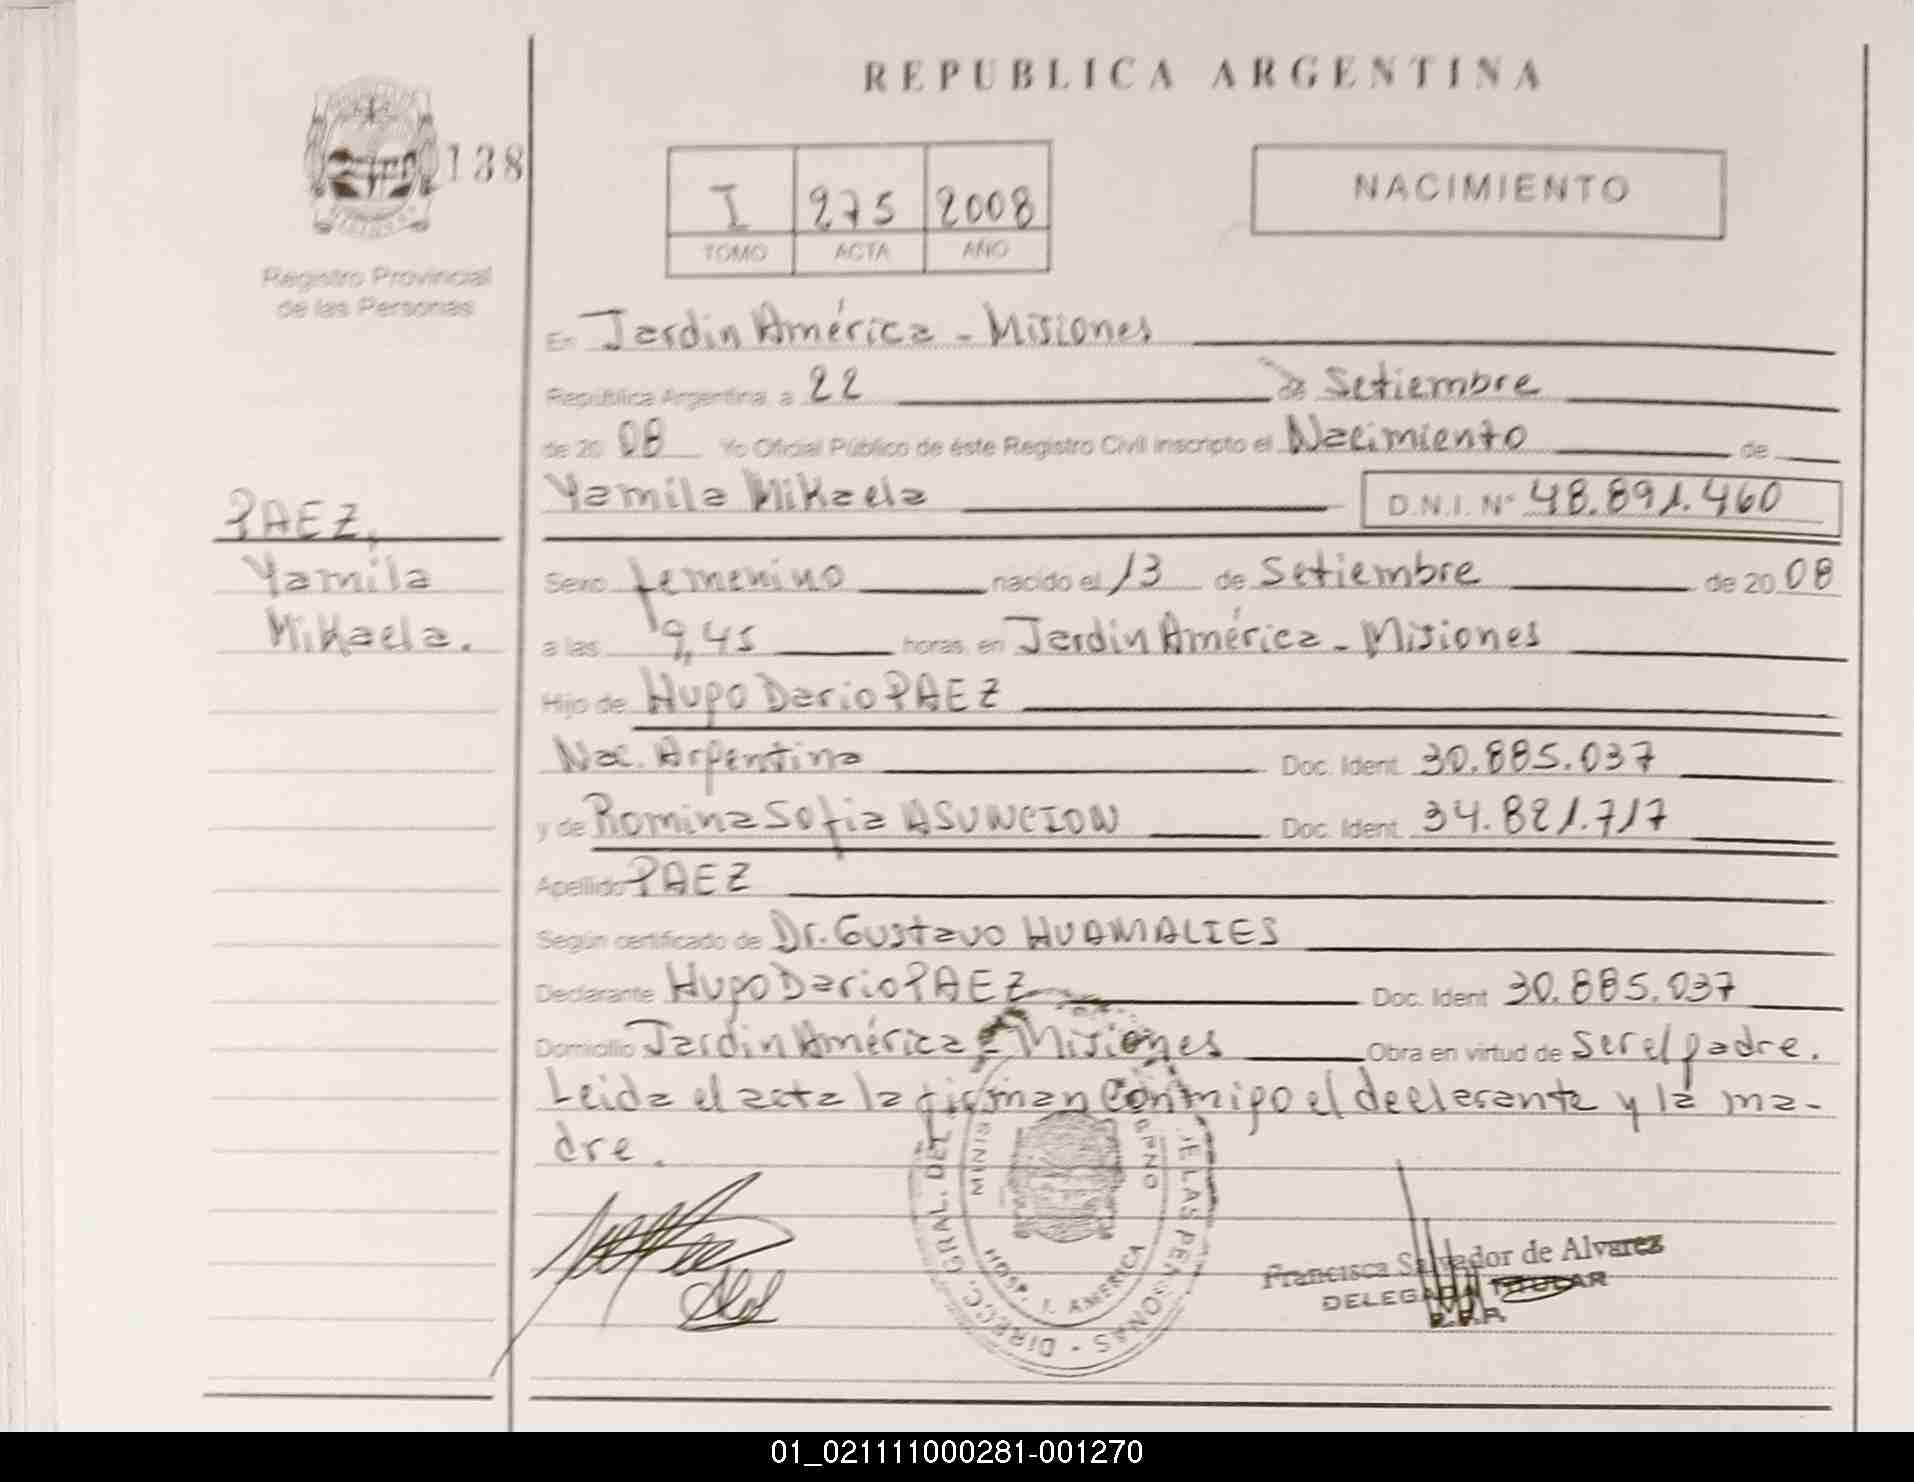 REPUBLICA ARGENTINA
138
I 275 2008
TOMO ACTA AÑO
NACIMIENTO
Registro Provincial
de las Personas
En Jardin América - Misiones
República Argentina a 22 de Setiembre
de 20 08 Yo Oficial Público de éste Registro Civil inscripto el Nacimiento de
Yamila Mikaela D.N.I. Nº 48.891.460
PAEZ,
Yamila
Mikaela.
Sexo femenino nacido el 13 de Setiembre de 20 08
a las 9,45 horas, en Jardin América - Misiones
Hijo de Hugo Dario PAEZ
Nac. Argentina Doc. Ident. 30.885.037
y de Romina Sofia ASUNCION Doc. Ident. 34.821.717
Apellido PAEZ
Según certificado de Dr. Gustavo HUAMALIES
Declarante Hugo Dario PAEZ Doc. Ident 30.885.037
Domicilio Jardin América - Misiones Obra en virtud de ser el padre.
Leida el acta la firman conmigo el declarante y la ma-
dre.
DIRECC. GRAL. DEL DE LAS PERSONAS
MINIS
HOSP. J. AMERICA
Francisca Salvador de Alvarez
DELEGADA TITULAR
R.P.P.
01_021111000281-001270